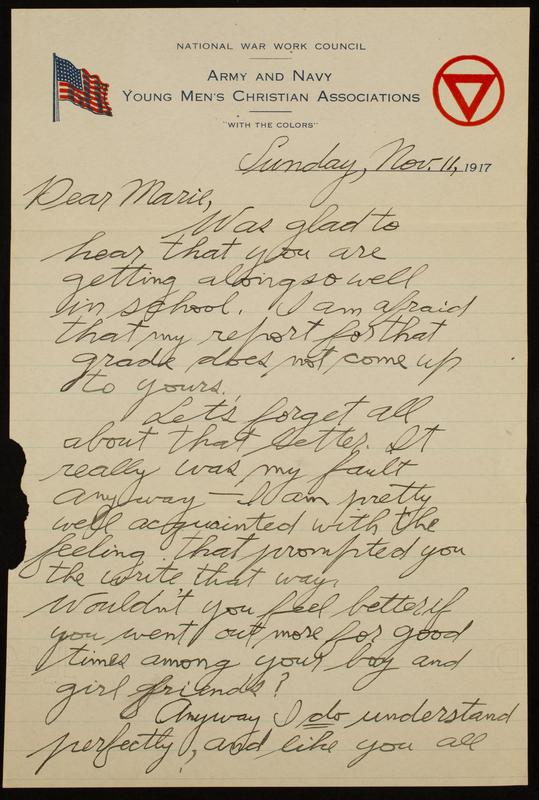 NATIONAL WAR WORK COUNCIL
ARMY AND NAVY
YOUNG MEN'S CHRISTIAN ASSOCIATIONS
"WITH THE COLORS"
Sunday, Nov. 11, 1917
Dear Marie,
Was glad to
hear that you are
getting along so well
in school. I am afraid
that my report for that
grade does not come up
to yours.
Let's forget all
about that letter. It
really was my fault
anyway — I am pretty
well acquainted with the
feeling that prompted you
the write that way.
Wouldn't you feel better if
you went out more for good
times among your boy and
girl friends?
Anyway I do understand
perfectly, and like you all